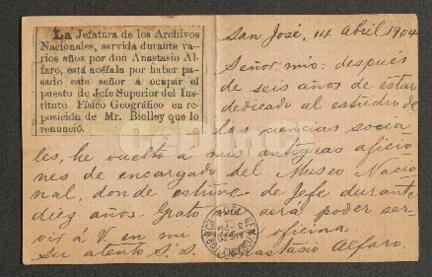 La Jefatura de los Archivos
Nacionales, servida durante va-
rios años por don Anastasio Al-
faro, está acéfala por haber pa-
sado este señor á ocupar el
puesto de Jefe Superior del Ins-
tituto Físico Geográfico en re-
posición de Mr. Biolley que lo
renunció.
San José, 14 Abril 1904
Señor mío: después
de seis años de estar
dedicado al estudio de
las ciencias socia
les, he vuelto a mis antiguas aficio
nes de encargado del Museo Nacio
nal, donde estuve de Jefe durante
diez años. Grato me será poder ser-
vir á V. en mi oficina.
Su atento S. S. Anastasio Alfaro.